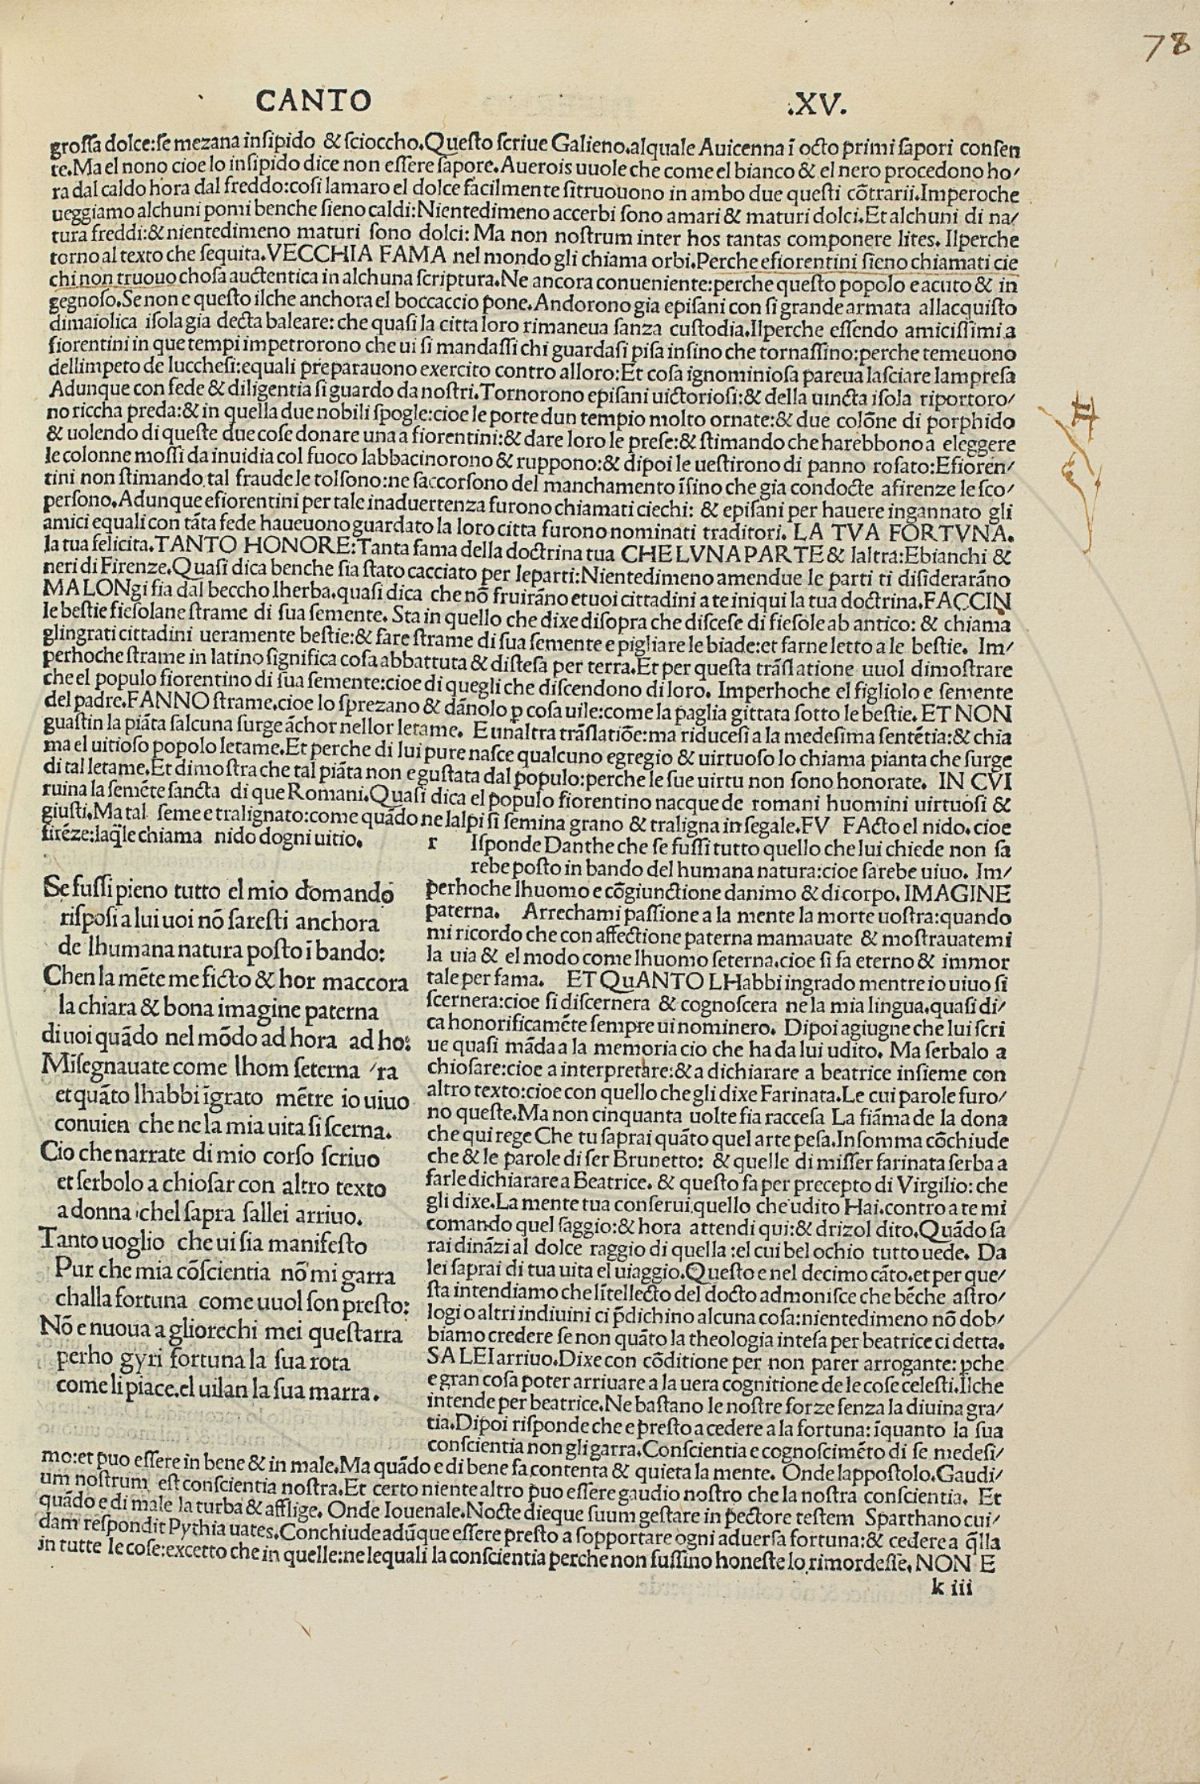 78
CANTO .XV.
groſſa dolce:ſe mezana inſipido & ſcioccho.Queſto ſcriue Galieno.alquale Auicenna ī octo primi ſapori conſen
te.Ma el nono cioe lo inſipido dice non eſſere ſapore.Auerois uuole che come el bianco & el nero procedono ho/
ra dal caldo hora dal freddo:coſi lamaro el dolce facilmente ſitruouono in ambo due queſti cōtrarii.Imperoche
ueggiamo alchuni pomi benche ſieno caldi:Nientedimeno accerbi ſono amari & maturi dolci.Et alchuni di na/
tura freddi:& nientedimeno maturi ſono dolci: Ma non noſtrum inter hos tantas componere lites. Ilperche
torno al texto che ſequita.VECCHIA FAMA nel mondo gli chiama orbi.Perche efiorentini ſieno chiamati cie
chi non truouo choſa auctentica in alchuna ſcriptura.Ne ancora conueniente:perche queſto popolo e acuto & in
gegnoſo.Se non e queſto ilche anchora el boccaccio pone.Andorono gia epiſani con ſi grande armata allacquiſto
dimaiolica iſola gia decta baleare: che quaſi la citta loro rimaneua ſanza cuſtodia.Ilperche eſſendo amiciſſimi a
fiorentini in que tempi impetrorono che ui ſi mandaſſi chi guardaſi piſa inſino che tornaſſino:perche temeuono
dellimpeto de luccheſi:equali preparauono exercito contro alloro:Et coſa ignominioſa pareua laſciare lampreſa
Adunque con fede & diligentia ſi guardo da noſtri.Tornorono epiſani uictorioſi:& della uincta iſola riportoro/
no riccha preda:& in quella due nobili ſpogle:cioe le porte dun tempio molto ornate:& due colōne di porphido
& uolendo di queſte due coſe donare una a fiorentini:& dare loro le preſe:& ſtimando che harebbono a eleggere
le colonne moſſi da inuidia col fuoco labbacinorono & ruppono:& dipoi le ueſtirono di panno roſato:Efioren/
tini non ſtimando tal fraude le tolſono:ne ſaccorſono del manchamento īſino che gia condocte afirenze le ſco/
perſono.Adunque efiorentini per tale inaduertenza furono chiamati ciechi: & epiſani per hauere ingannato gli
amici equali con tāta fede haueuono guardato la loro citta furono nominati traditori. LA TVA FORTVNA.
la tua felicita.TANTO HONORE:Tanta fama della doctrina tua CHELVNAPARTE & laltra:Ebianchi &
neri di Firenze.Quaſi dica benche ſia ſtato cacciato per leparti:Nientedimeno amendue le parti ti diſiderarāno
MALONgi fia dal beccho lherba.quaſi dica che nō fruirāno etuoi cittadini a te iniqui la tua doctrina.FACCIN
le beſtie fieſolane ſtrame di ſua ſemente. Sta in quello che dixe diſopra che diſceſe di fieſole ab antico: & chiama
glingrati cittadini ueramente beſtie:& fare ſtrame di ſua ſemente e pigliare le biade:et farne letto a le beſtie. Im/
perhoche ſtrame in latino ſignifica coſa abbattuta & diſteſa per terra.Et per queſta trāſlatione uuol dimoſtrare
che el populo fiorentino di ſua ſemente:cioe di quegli che diſcendono di loro. Imperhoche el figliolo e ſemente
del padre.FANNO ſtrame.cioe lo ſprezano & dānolo p coſa uile:come la paglia gittata ſotto le beſtie. ET NON
guaſtin la piāta ſalcuna ſurge āchor nellor letame. E unaltra trāſlatiōe:ma riduceſi a la medeſima ſentētia:& chia
ma el uitioſo popolo letame.Et perche di lui pure naſce qualcuno egregio & uirtuoſo lo chiama pianta che ſurge
di tal letame.Et dimoſtra che tal piāta non e guſtata dal populo:perche le ſue uirtu non ſono honorate. IN CVI
ruina la ſemēte ſancta di que Romani.Quaſi dica el populo fiorentino nacque de romani huomini uirtuoſi &
giuſti.Ma tal ſeme e tralignato:come quādo ne lalpi ſi ſemina grano & traligna in ſegale.FV FActo el nido.cioe
firēze:laqle chiama nido dogni uitio.
Se fuſſi pieno tutto el mio domando
riſpoſi a lui uoi nō ſareſti anchora
de lhumana natura poſto ī bando:
Chen la mēte me ficto & hor maccora
la chiara & bona imagine paterna
di uoi quādo nel mōdo ad hora ad ho:
Miſegnauate come lhom ſeterna /ra
et quāto lhabbi īgrato mētre io uiuo
conuien che ne la mia uita ſi ſcerna.
Cio che narrate di mio corſo ſcriuo
et ſerbolo a chioſar con altro texto
a donna chel ſapra ſallei arriuo.
Tanto uoglio che ui ſia manifeſto
Pur che mia cōſcientia nō mi garra
challa fortuna come uuol ſon preſto:
Nō e nuoua a gliorechi mei queſtarra
perho gyri fortuna la ſua rota
come li piace.el uilan la ſua marra.
r Iſponde Danthe che ſe fuſſi tutto quello che lui chiede non ſa
rebe poſto in bando del humana natura:cioe ſarebe uiuo. Im/
perhoche lhuomo e cōgiunctione danimo & di corpo. IMAGINE
paterna. Arrechami paſſione a la mente la morte uoſtra:quando
mi ricordo che con affectione paterna mamauate & moſtrauatemi
la uia & el modo come lhuomo ſeterna.cioe ſi fa eterno & immor
tale per fama. ET QuANTO LHabbi ingrado mentre io uiuo ſi
ſcernera:cioe ſi diſcernera & cognoſcera ne la mia lingua.quaſi di/
ca honorificamēte ſempre ui nominero. Dipoi agiugne che lui ſcri
ue quaſi māda a la memoria cio che ha da lui udito. Ma ſerbalo a
chioſare:cioe a interpretare:& a dichiarare a beatrice inſieme con
altro texto:cioe con quello che gli dixe Farinata.Le cui parole furo/
no queſte.Ma non cinquanta uolte fia racceſa La fiāma de la dona
che qui rege Che tu ſaprai quāto quel arte peſa.Inſomma cōchiude
che & le parole di ſer Brunetto: & quelle di miſſer farinata ſerba a
farle dichiarare a Beatrice. & queſto fa per precepto di Virgilio: che
gli dixe.La mente tua conſerui quello che udito Hai.contro a te mi
comando quel ſaggio:& hora attendi qui:& drizol dito.Quādo ſa
rai dināzi al dolce raggio di quella :el cui bel ochio tutto uede. Da
lei ſaprai di tua uita el uiaggio.Queſto e nel decimo cāto.et per que/
ſta intendiamo che lītellecto del docto admoniſce che bēche aſtro/
logi o altri indiuini ci p̄dichino alcuna coſa:nientedimeno nō dob/
biamo credere ſe non quāto la theologia inteſa per beatrice ci detta.
SALEI arriuo.Dixe con cōditione per non parer arrogante: pche
e gran coſa poter arriuare a la uera cognitione de le coſe celeſti.Ilche
intende per beatrice.Ne baſtano le noſtre forze ſenza la diuina gra/
tia.Dipoi riſponde che e preſto a cedere a la fortuna: īquanto la ſua
conſcientia non gli garra.Conſcientia e cognoſcimēto di ſe medeſi/
mo:et puo eſſere in bene & in male.Ma quādo e di bene fa contenta & quieta la mente. Onde lappoſtolo.Gaudi/
um noſtrum eſt conſcientia noſtra.Et certo niente altro puo eſſere gaudio noſtro che la noſtra conſcientia. Et
quādo e di male la turba & afflige. Onde Iouenale.Nocte dieque ſuum geſtare in pectore teſtem Sparthano cui/
dam reſpondit Pythia uates.Conchiude adūque eſſere preſto a ſopportare ogni aduerſa fortuna:& cedere a qlla
in tutte le coſe:excetto che in quelle:ne lequali la conſcientia perche non fuſſino honeſte lo rimordeſſe. NON E
k iii